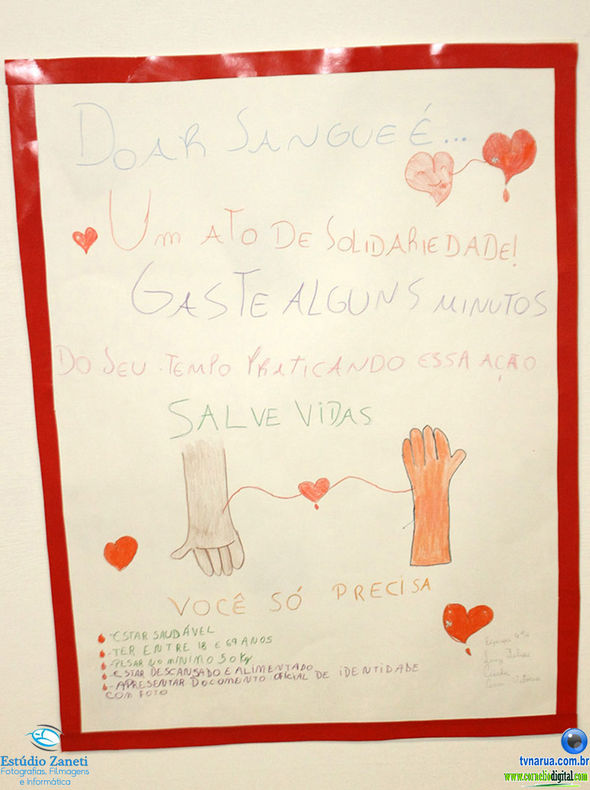 DOAR SANGUE É...
UM ATO DE SOLIDARIEDADE!
GASTE ALGUNS MINUTOS
DO SEU TEMPO PRATICANDO ESSA AÇÃO
SALVE VIDAS
VOCÊ SÓ PRECISA
- ESTAR SAUDÁVEL
- TER ENTRE 18 E 69 ANOS
- PESAR NO MÍNIMO 50 Kg
- ESTAR DESCANSADO E ALIMENTADO
- APRESENTAR DOCUMENTO OFICIAL DE IDENTIDADE
COM FOTO
Estúdio Zaneti
Fotografias, Filmagens
e Informática
tvnarua.com.br
www.corneliodigital.com